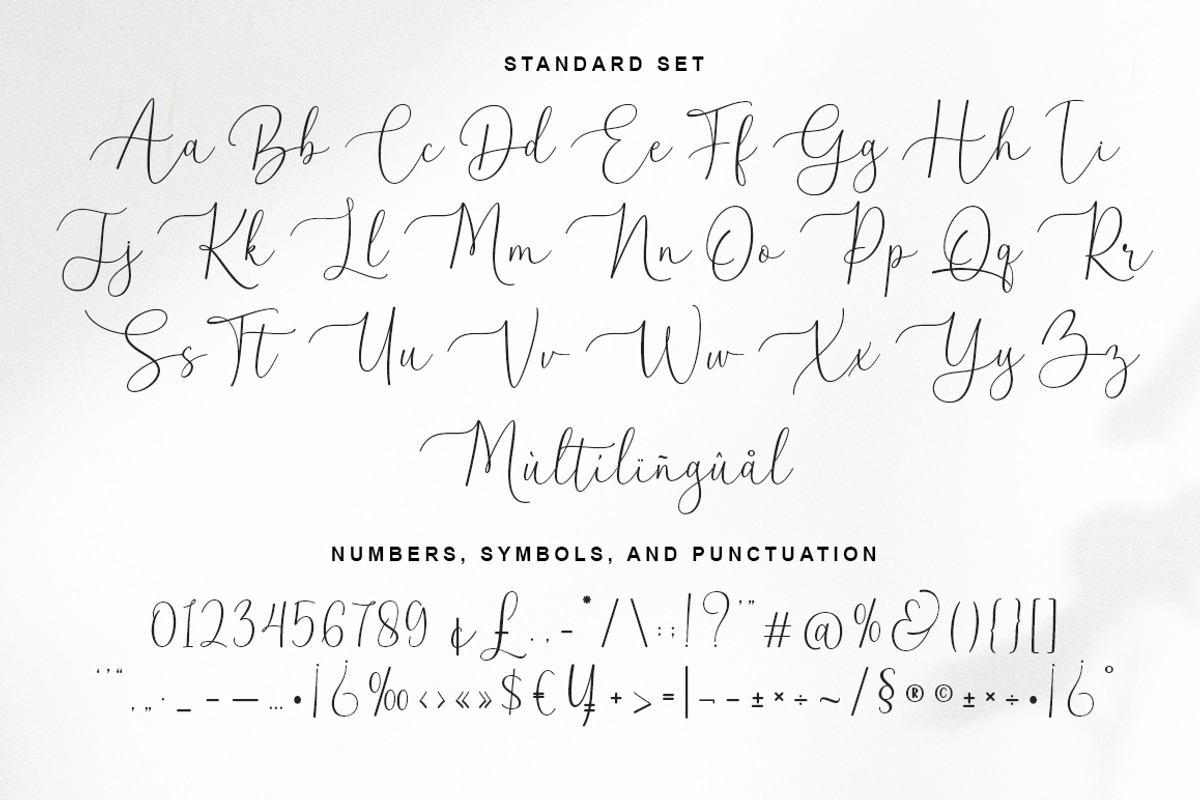 STANDARD SET
Aa Bb Cc Dd Ee Ff Gg Hh Ii
Jj Kk Ll Mm Nn Oo Pp Qq Rr
Ss Tt Uu Vv Ww Xx Yy Zz
Mùltílïñgûål
NUMBERS, SYMBOLS, AND PUNCTUATION
0123456789 ¢ £ . , - * / \ : ; ! ? ' " # @ % & ( ) { } [ ]
‘ ’ “ ‚ „ · _ – — … • ¡ ¿ ‰ ‹ › « » $ € ¥ + > = | ¬ − ± × ÷ ~ / § ® © ± × ÷ • ¡ ¿ °